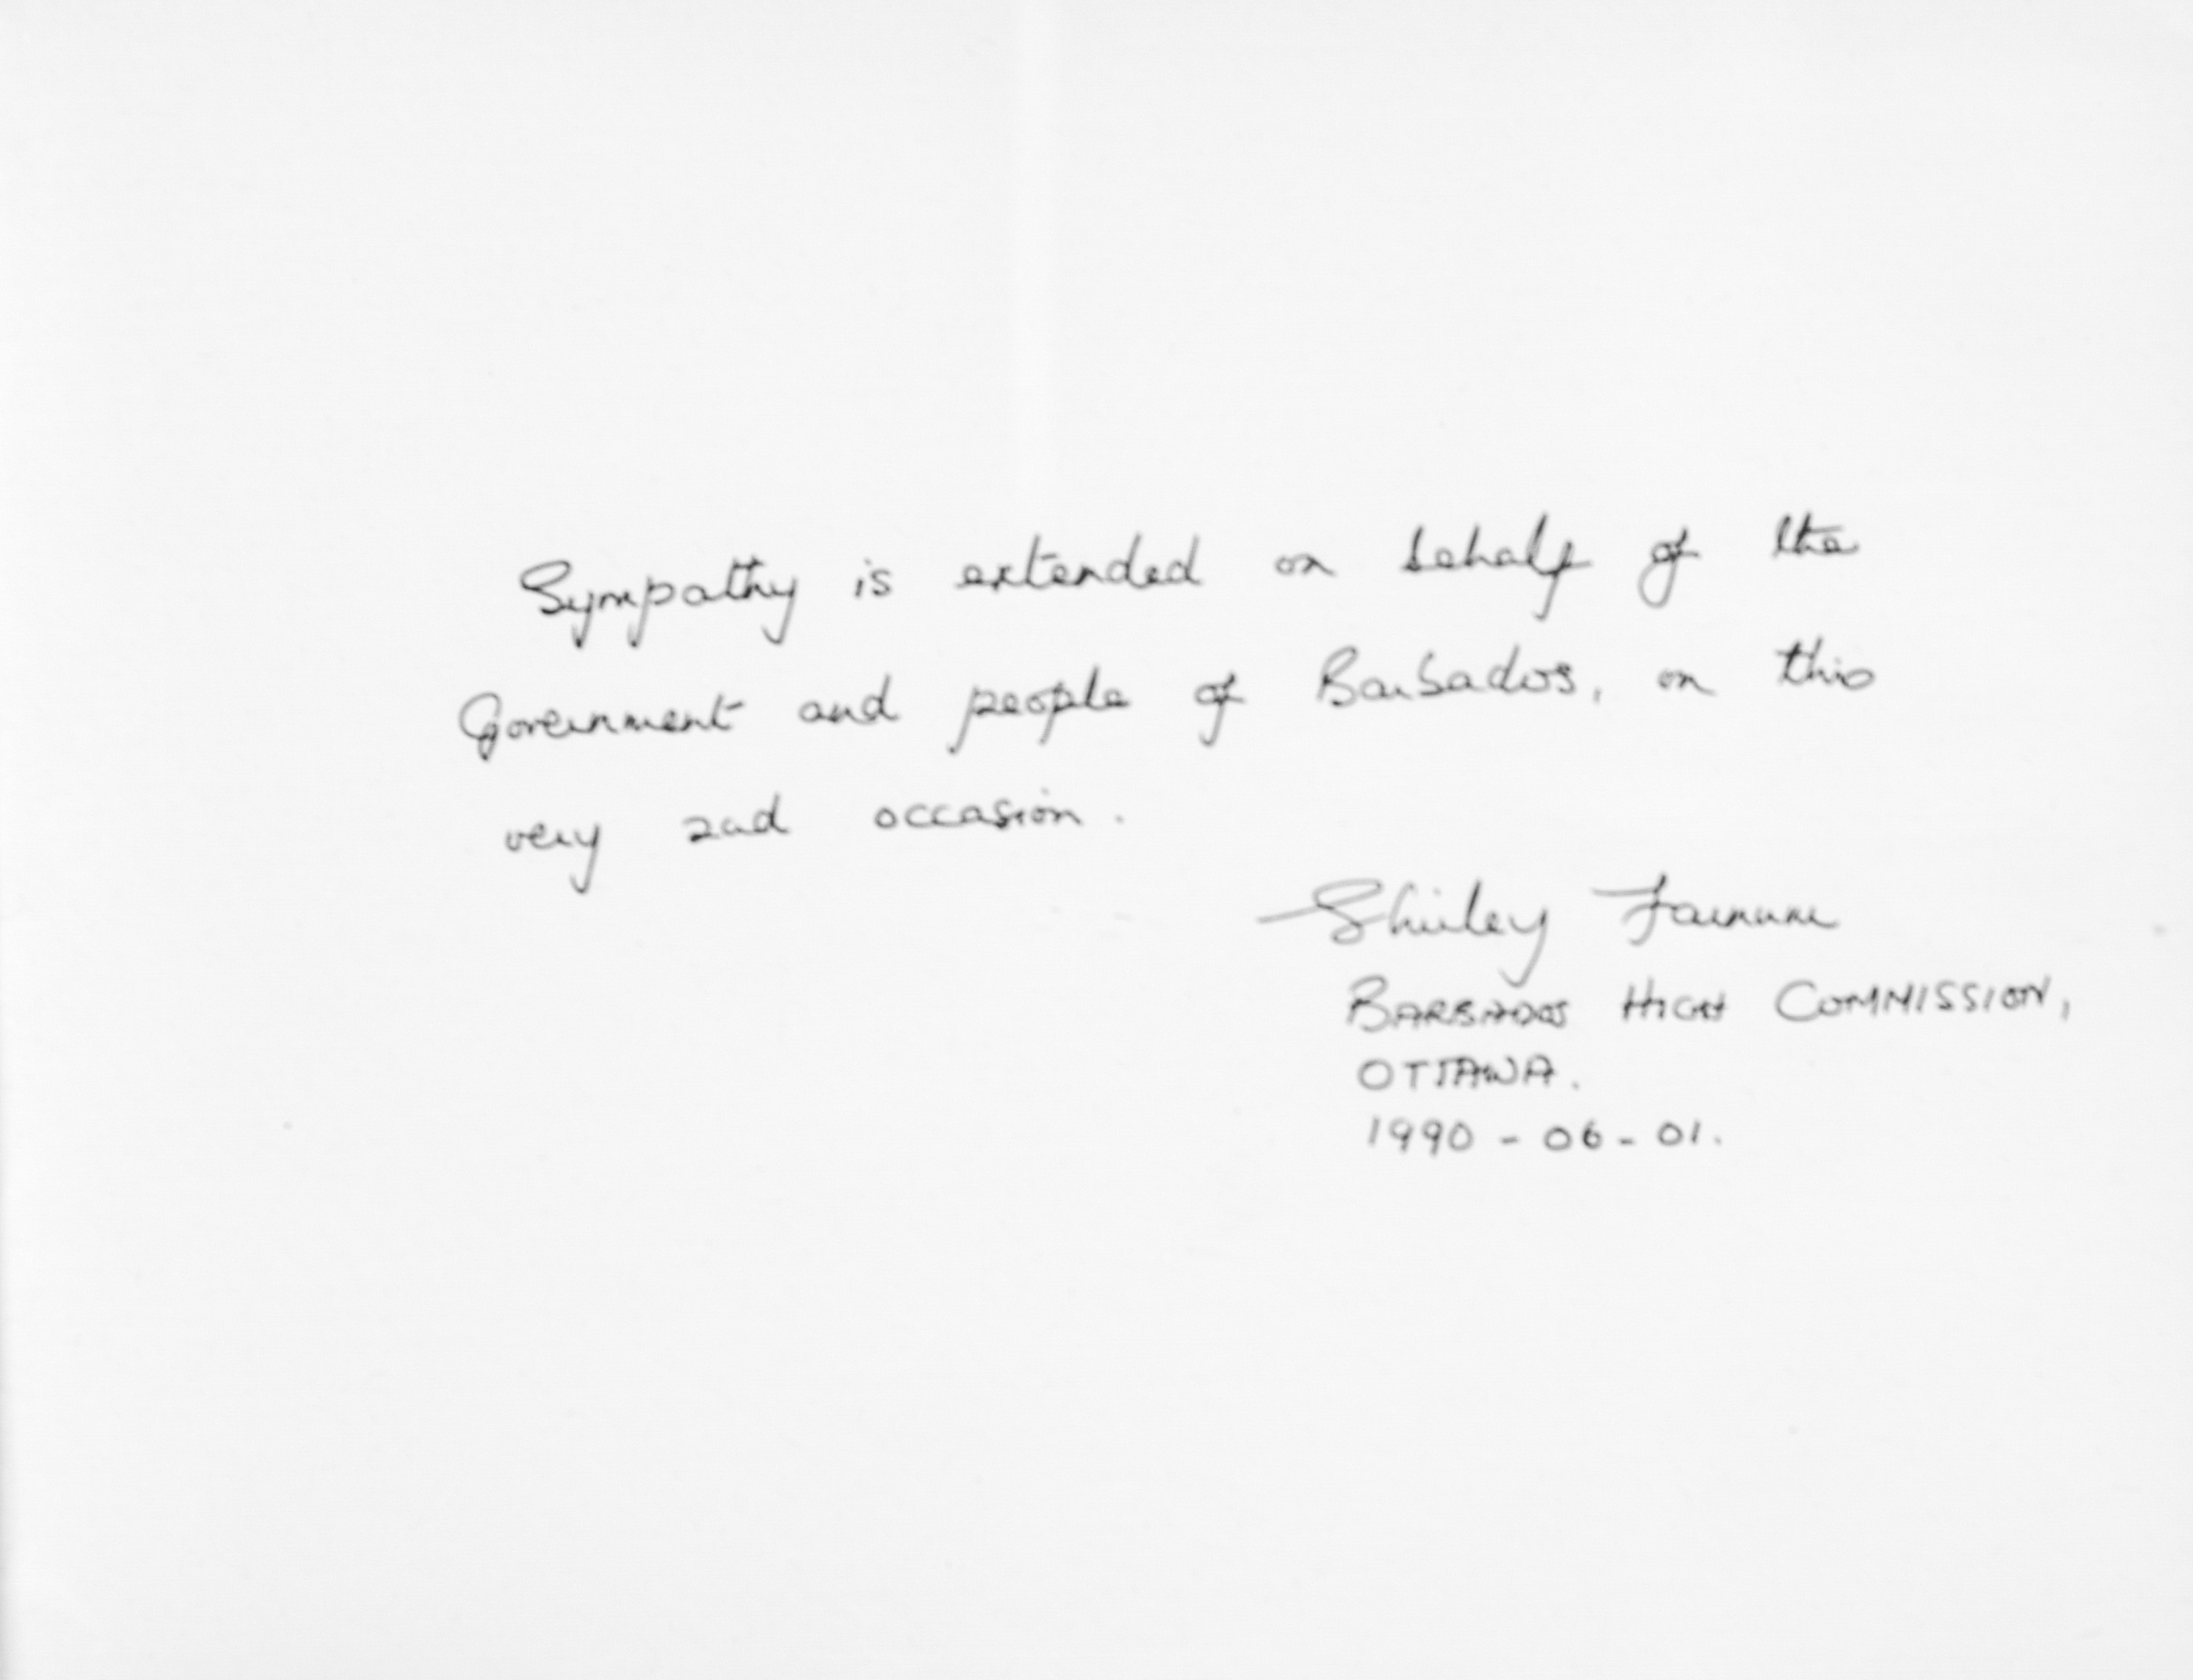 Sympathy is extended on behalf of the
Government and people of Barbados, on this
very sad occasion.
Shirley
BARBADOS HIGH COMMISSION,
OTTAWA.
1990-06-01.